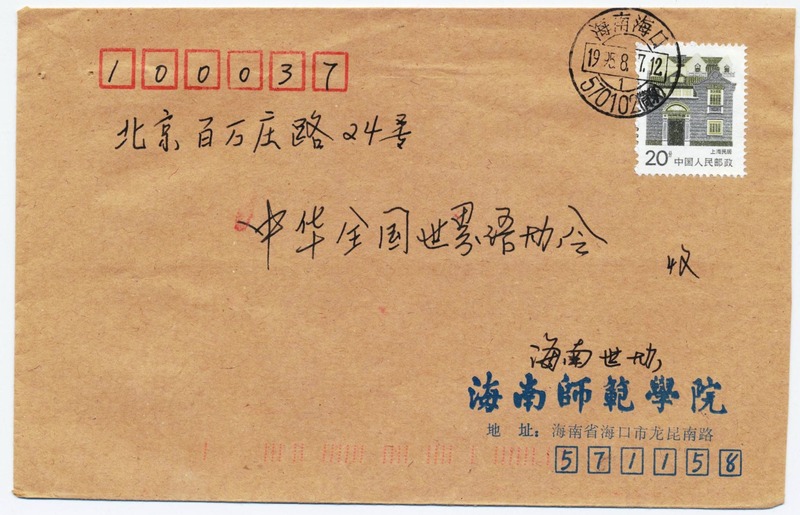 海南海口
1995.8.7.12
1
570102
上海民居
20分 中国人民邮政
100037
北京百万庄路24号
中华全国世界语协会
收
海南世协
海南师範學院
地 址：海南省海口市龙昆南路
571158